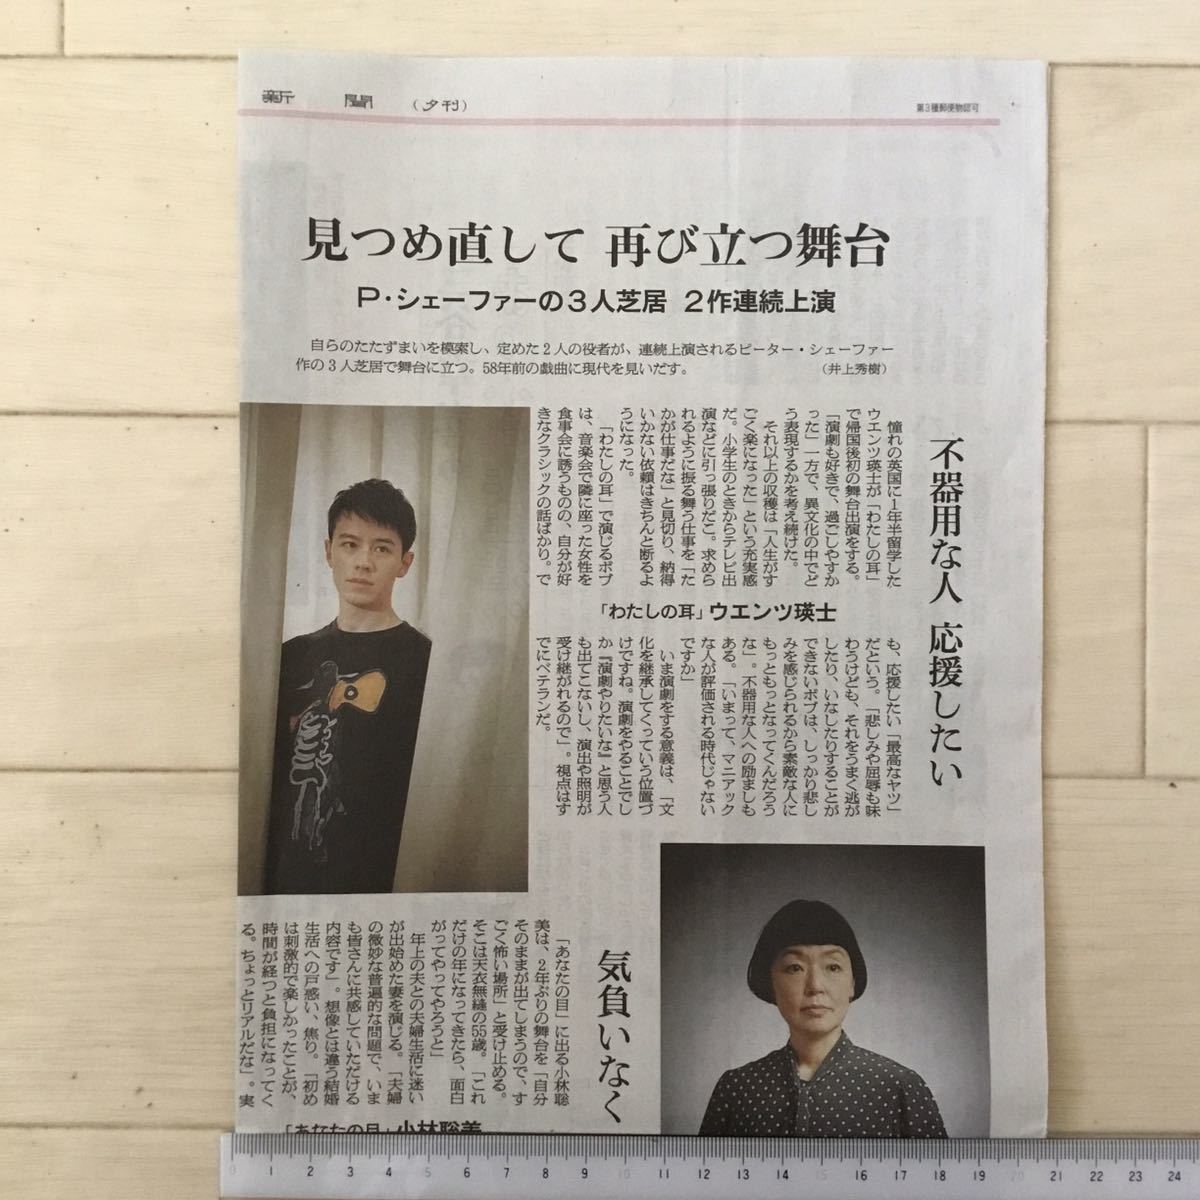 新聞（夕刊）
第3種郵便物認可
見つめ直して 再び立つ舞台
P・シェーファーの3人芝居 2作連続上演
自らのたたずまいを模索し、定めた2人の役者が、連続上演されるピーター・シェーファー
作の3人芝居で舞台に立つ。58年前の戯曲に現代を見いだす。（井上秀樹）
不器用な人 応援したい
憧れの英国に1年半留学した
ウエンツ瑛士が「わたしの耳」
で帰国後初の舞台出演をする。
「演劇も好きで、過ごしやすか
った」一方で、異文化の中でど
う表現するかを考え続けた。
それ以上の収穫は「人生がす
ごく楽になった」という充実感
だ。小学生のときからテレビ出
演などに引っ張りだこ。求めら
れるように振る舞う仕事を「た
かが仕事だな」と見切り、納得
いかない依頼はきちんと断るよ
うになった。
「わたしの耳」で演じるボブ
は、音楽会で隣に座った女性を
食事会に誘うものの、自分が好
きなクラシックの話ばかり。で
「わたしの耳」ウエンツ瑛士
も、応援したい「最高なヤツ」
だという。「悲しみや屈辱も味
わうけども、それをうまく逃が
したり、いなしたりすることが
できないボブは、しっかり悲し
みを感じられるから素敵な人に
もっともっとなってくんだろう
な」。不器用な人への励ましも
ある。「いまって、マニアック
な人が評価される時代じゃない
ですか」
いま演劇をする意義は、「文
化を継承してくっていう位置づ
けですね。演劇をやることでし
か『演劇やりたいな』と思う人
も出てこないし、演出や照明が
受け継がれるので」。視点はす
でにベテランだ。
気負いなく
「あなたの目」に出る小林聡
美は、2年ぶりの舞台を「自分
そのままが出てしまうので、す
ごく怖い場所」と受け止める。
そこは天衣無縫の55歳。「これ
だけの年になってきたら、面白
がってやってやろうと」
年上の夫との夫婦生活に迷い
が出始めた妻を演じる。「夫婦
の微妙な普遍的な問題で、いま
も皆さんに共感していただける
内容です」。想像とは違う結婚
生活への戸惑い、焦り。「初め
は刺激的で楽しかったことが、
時間が経つと負担になってく
る。ちょっとリアルだな」。実
「あなたの目」小林聡美
0 1 2 3 4 5 6 7 8 9 10 11 12 13 14 15 16 17 18 19 20 21 22 23 24